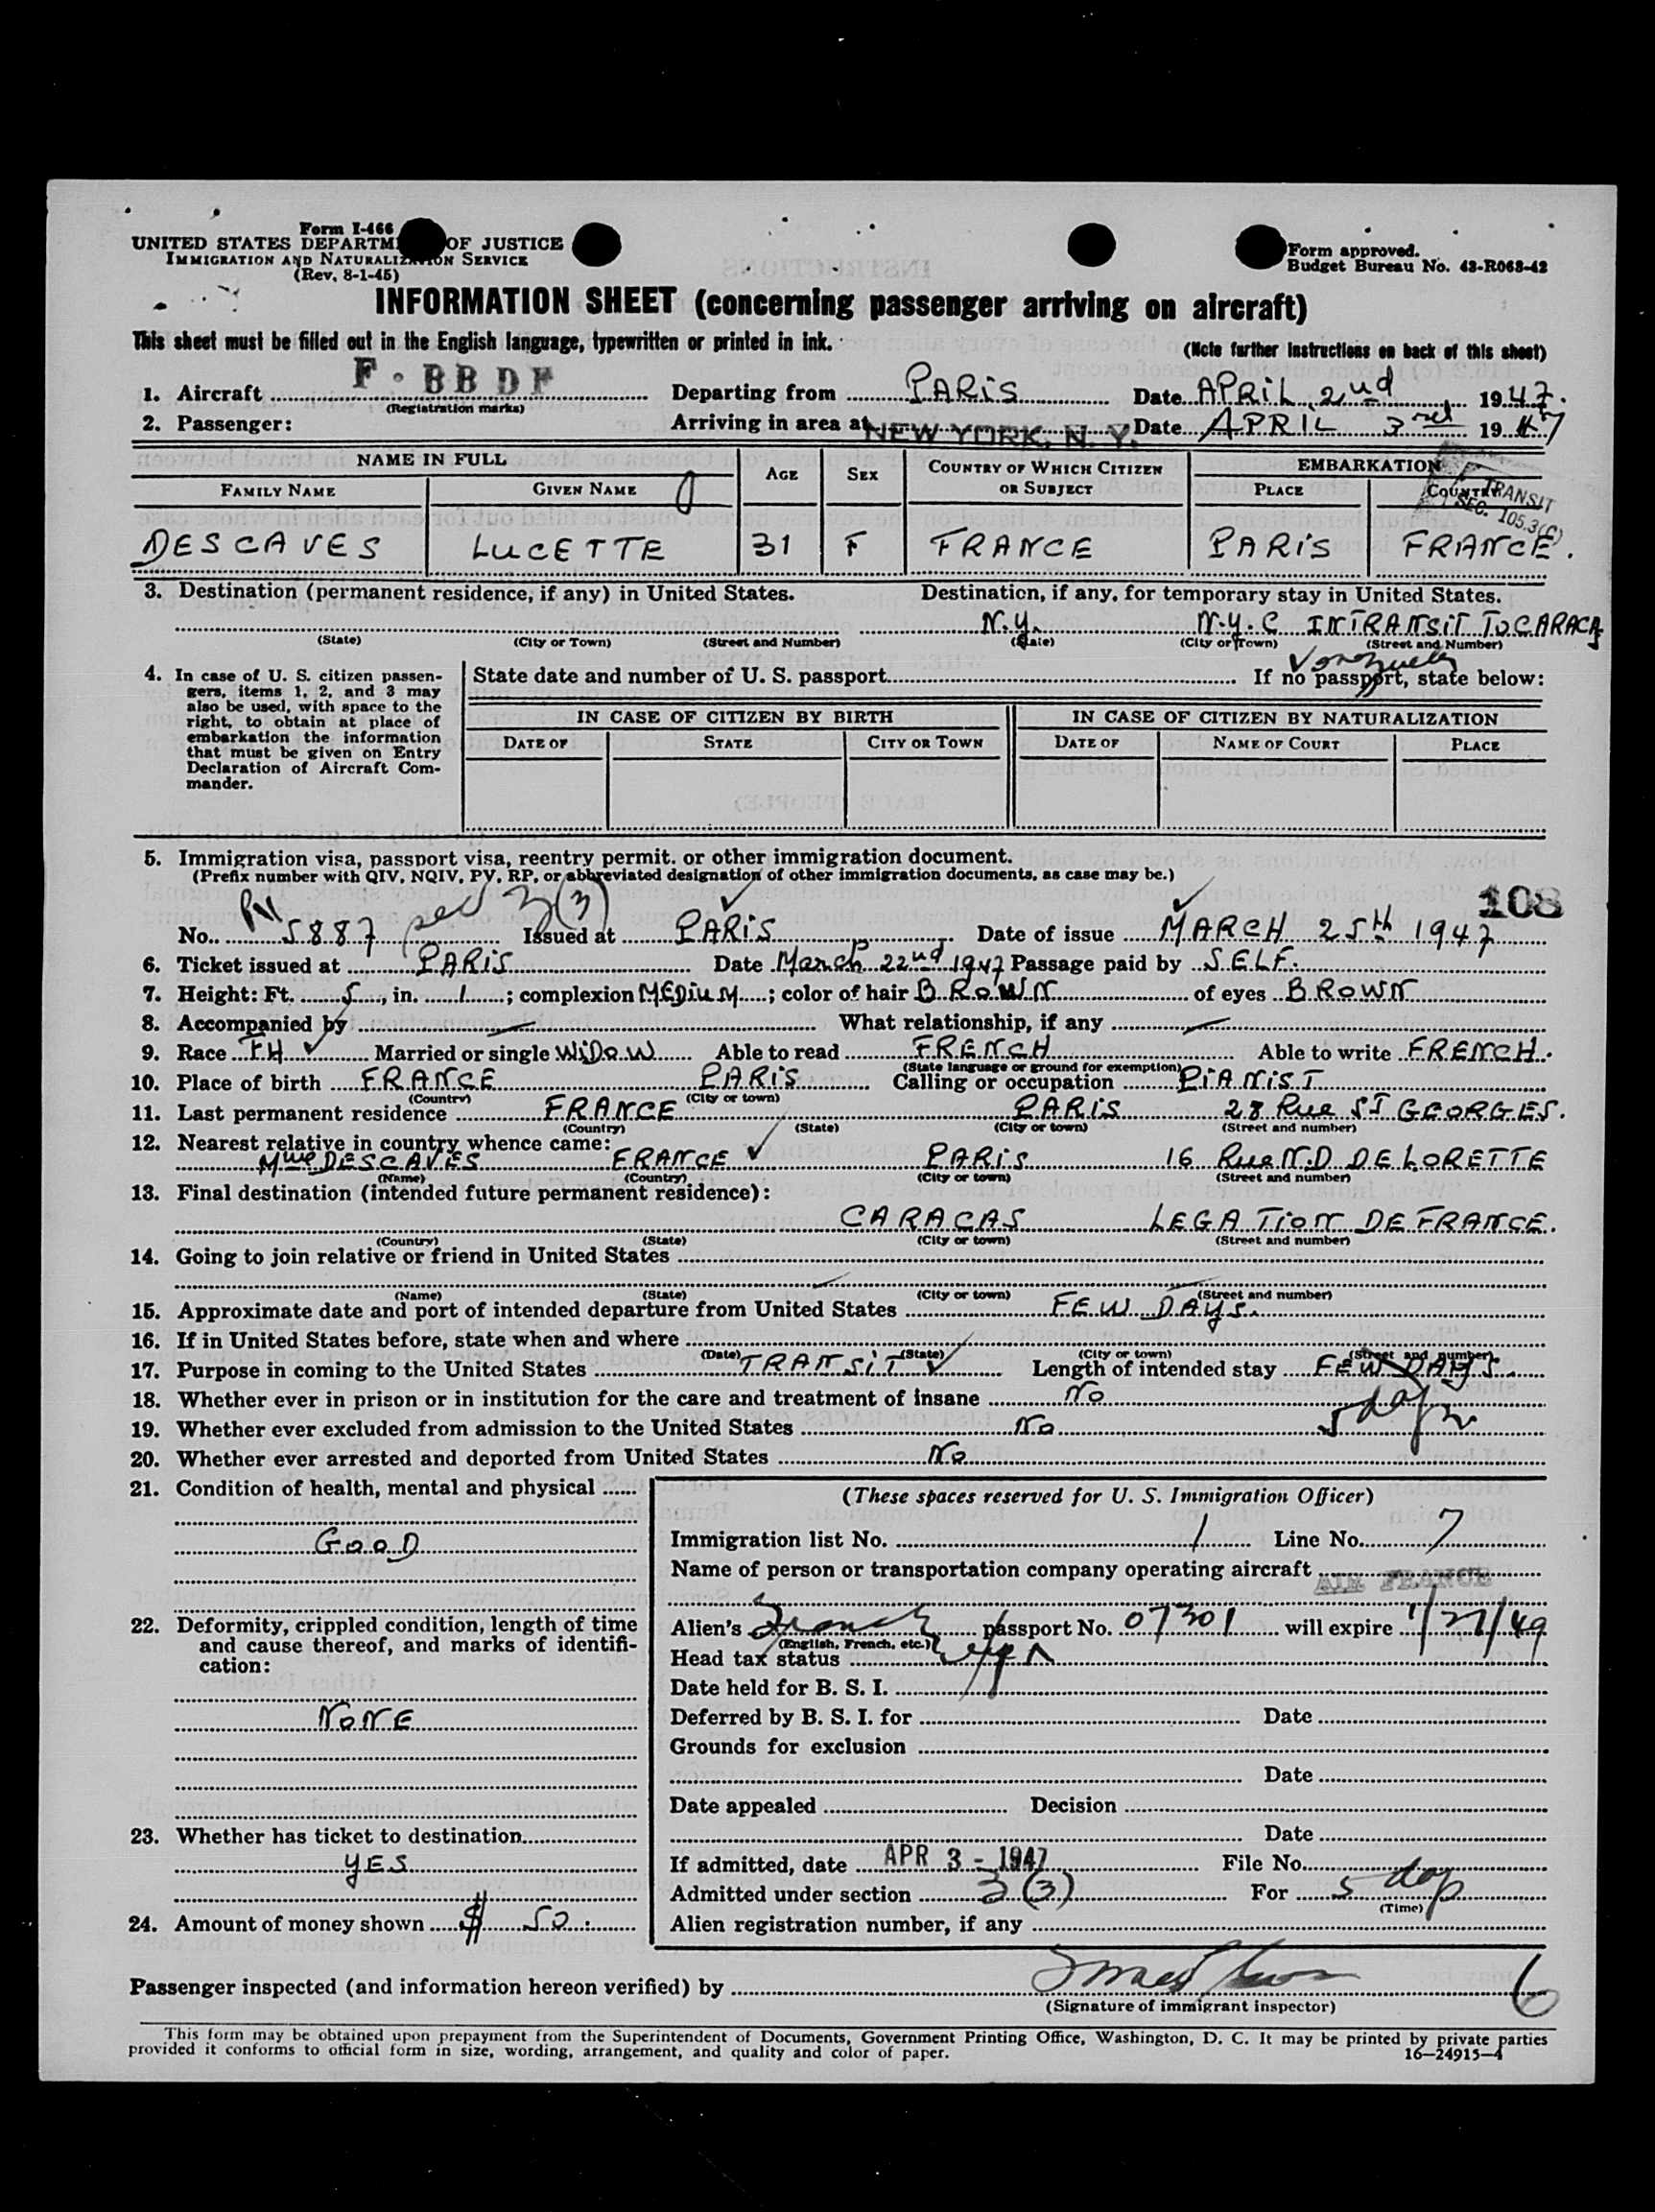 Form I-466
UNITED STATES DEPARTM OF JUSTICE
IMMIGRATION AND NATURALIZATION SERVICE
(Rev. 8-1-45)
Form approved.
Budget Bureau No. 43-R063-42
INFORMATION SHEET (concerning passenger arriving on aircraft)
This sheet must be filled out in the English language, typewritten or printed in ink.
(Note further instructions on back of this sheet)
1. Aircraft F·BBDF Departing from PARIS Date APRIL 2nd 1947.
(Registration marks)
2. Passenger: Arriving in area at NEW YORK, N. Y. Date APRIL 3rd 1947
NAME IN FULL AGE SEX COUNTRY OF WHICH CITIZEN OR SUBJECT EMBARKATION
FAMILY NAME GIVEN NAME PLACE COUNTRY
TRANSIT
SEC. 105.3(C)
DESCAVES LUCETTE 31 F FRANCE PARIS FRANCE.
3. Destination (permanent residence, if any) in United States. Destination, if any, for temporary stay in United States.
N.Y. N.Y.C INTRANSIT TO CARACAS
(State) (City or Town) (Street and Number) (State) (City or Town) (Street and Number)
Venezuela
4. In case of U. S. citizen passengers, items 1, 2, and 3 may also be used, with space to the right, to obtain at place of embarkation the information that must be given on Entry Declaration of Aircraft Commander.
State date and number of U. S. passport If no passport, state below:
IN CASE OF CITIZEN BY BIRTH IN CASE OF CITIZEN BY NATURALIZATION
DATE OF STATE CITY OR TOWN DATE OF NAME OF COURT PLACE
5. Immigration visa, passport visa, reentry permit, or other immigration document.
(Prefix number with QIV, NQIV, PV, RP, or abbreviated designation of other immigration documents, as case may be.)
108
No. PV 5887 sec 3(3) Issued at PARIS Date of issue MARCH 25th 1947
6. Ticket issued at PARIS Date March 22nd 1947 Passage paid by SELF.
7. Height: Ft. 5, in. 1; complexion MEDIUM; color of hair BROWN of eyes BROWN
8. Accompanied by What relationship, if any
9. Race FH Married or single WIDOW Able to read FRENCH Able to write FRENCH.
(State language or ground for exemption)
10. Place of birth FRANCE PARIS Calling or occupation PIANIST
(Country) (City or town)
11. Last permanent residence FRANCE PARIS 28 Rue ST GEORGES.
(Country) (State) (City or town) (Street and number)
12. Nearest relative in country whence came:
Mme DESCAVES FRANCE PARIS 16 Rue N.D DE LORETTE
(Name) (Country) (City or town) (Street and number)
13. Final destination (intended future permanent residence):
CARACAS LEGATION DE FRANCE.
(Country) (State) (City or town) (Street and number)
14. Going to join relative or friend in United States
(Name) (State) (City or town) (Street and number)
15. Approximate date and port of intended departure from United States FEW DAYS.
16. If in United States before, state when and where
(Date) (State) (City or town) (Street and number)
17. Purpose in coming to the United States TRANSIT Length of intended stay FEW DAYS.
5 days
18. Whether ever in prison or in institution for the care and treatment of insane NO
19. Whether ever excluded from admission to the United States NO
20. Whether ever arrested and deported from United States NO
21. Condition of health, mental and physical
GOOD
22. Deformity, crippled condition, length of time and cause thereof, and marks of identification:
NONE
23. Whether has ticket to destination
YES
24. Amount of money shown $ 50.
(These spaces reserved for U. S. Immigration Officer)
Immigration list No. 1 Line No. 7
Name of person or transportation company operating aircraft AIR FRANCE
Alien's French passport No. 07301 will expire 1/27/49
(English, French, etc.)
Head tax status
Date held for B. S. I.
Deferred by B. S. I. for Date
Grounds for exclusion
Date
Date appealed Decision
Date
If admitted, date APR 3 - 1947 File No.
Admitted under section 3(3) For 5 days
(Time)
Alien registration number, if any
Passenger inspected (and information hereon verified) by 6
(Signature of immigrant inspector)
This form may be obtained upon prepayment from the Superintendent of Documents, Government Printing Office, Washington, D. C. It may be printed by private parties
provided it conforms to official form in size, wording, arrangement, and quality and color of paper. 16—24915-4